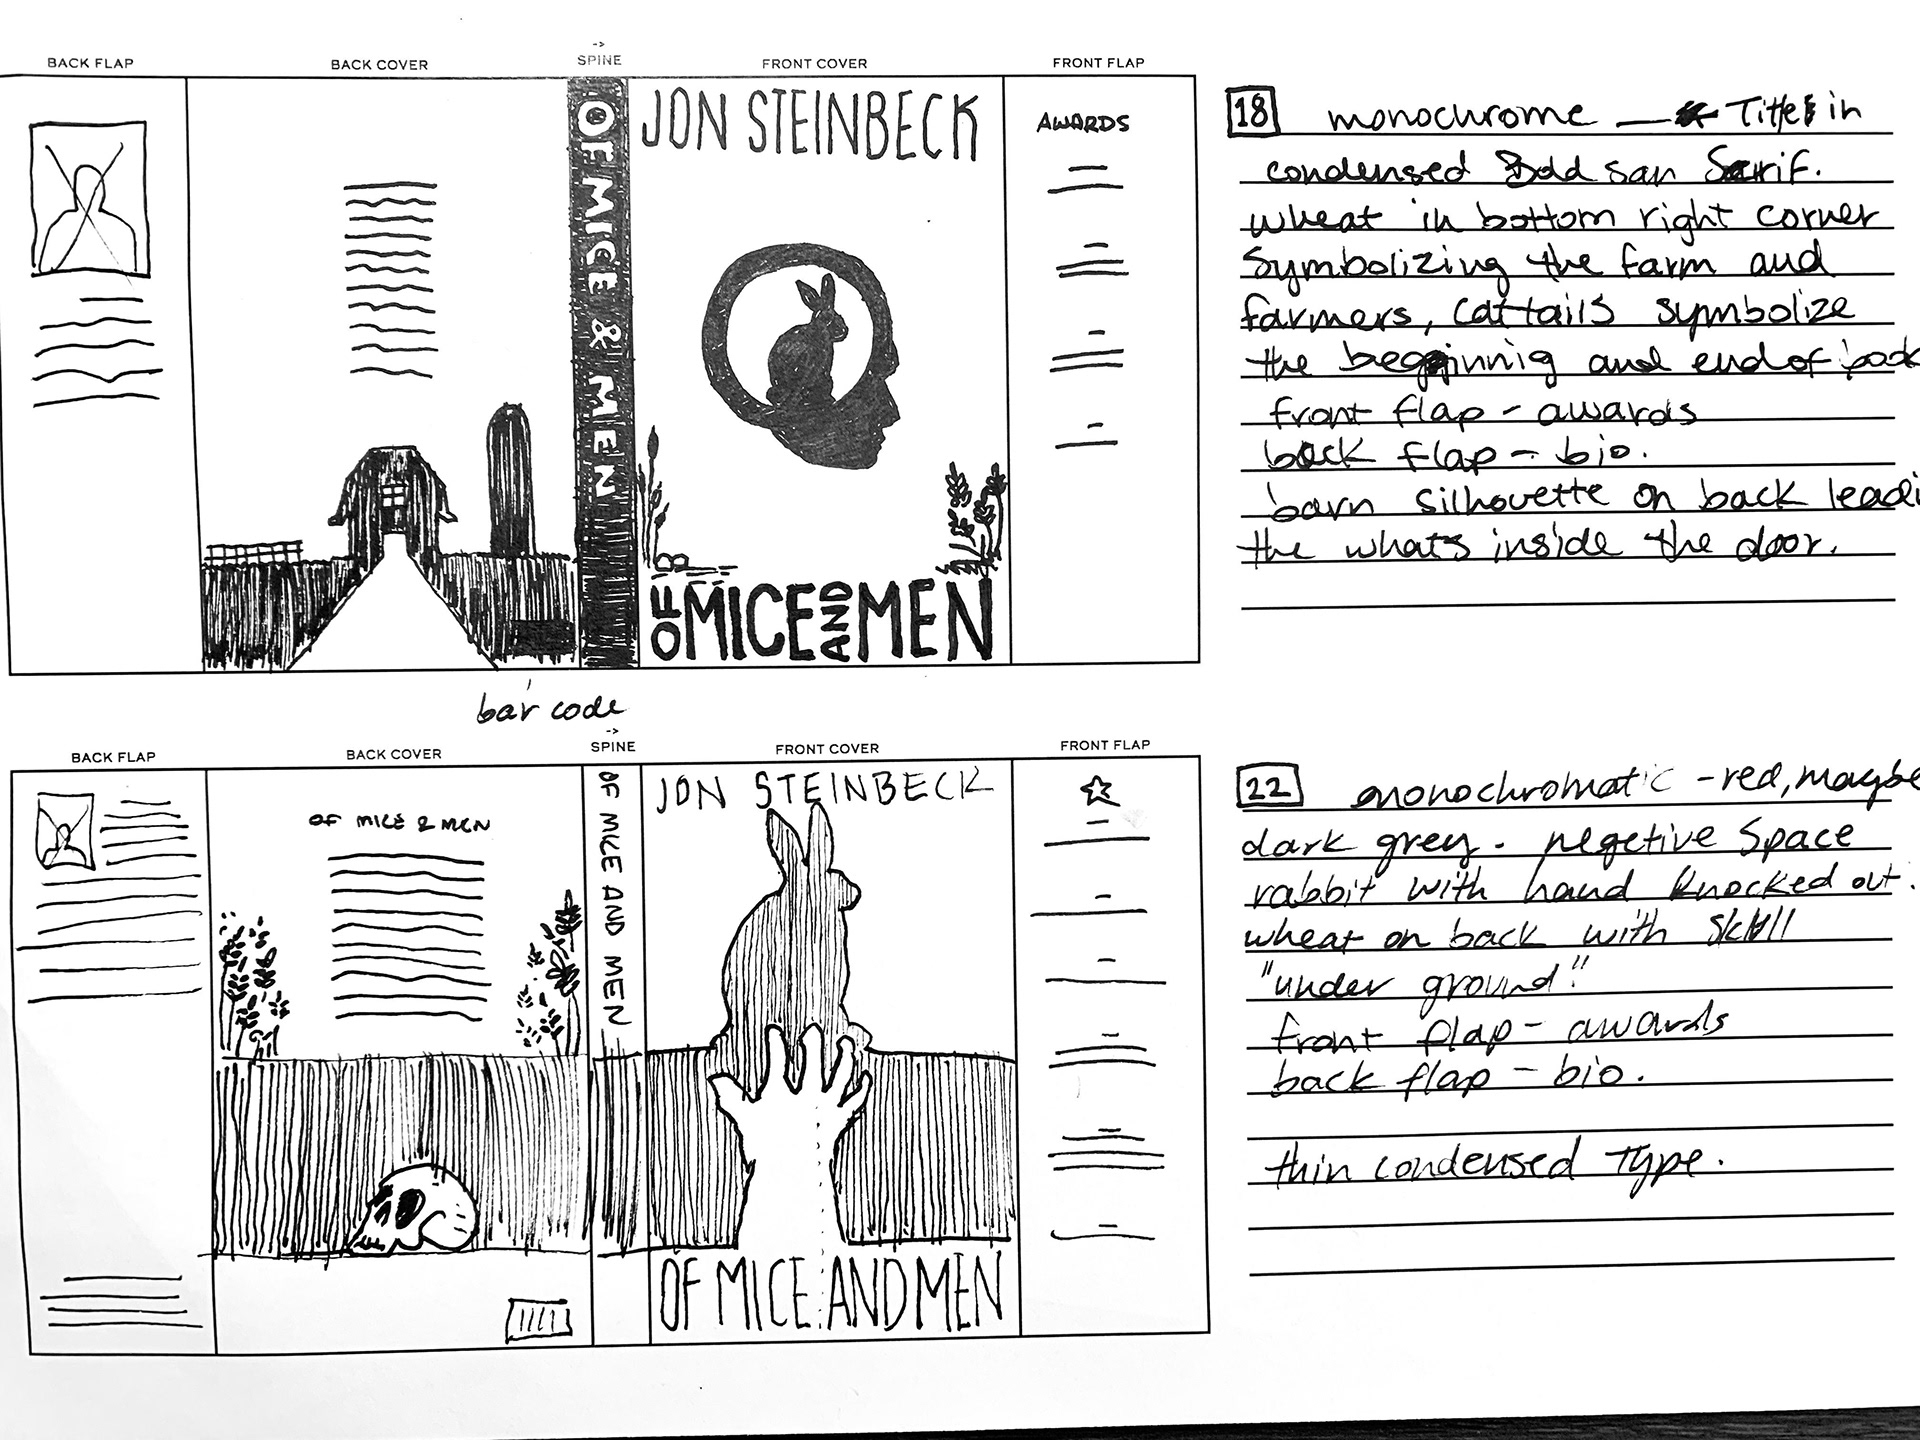 BACK FLAP
BACK COVER
->
SPINE
FRONT COVER
FRONT FLAP
OF MICE & MEN
JON STEINBECK
OF MICE AND MEN
AWARDS
18 monochrome — Title in
condensed Bold san Serif.
wheat in bottom right corner
Symbolizing the farm and
farmers, cattails symbolize
the beginnig and end of book
front flap - awards
back flap - bio.
barn silhouette on back leadi
the whats inside the door.
bar code
BACK FLAP
BACK COVER
->
SPINE
FRONT COVER
FRONT FLAP
OF MICE & MEN
OF MICE AND MEN
JON STEINBECK
OF MICE AND MEN
22 monochromatic - red, maybe
dark grey. negetive Space
rabbit with hand knocked out.
wheat on back with skull
"under ground"
front flap - awards
back flap - bio.
thin condensed Type.